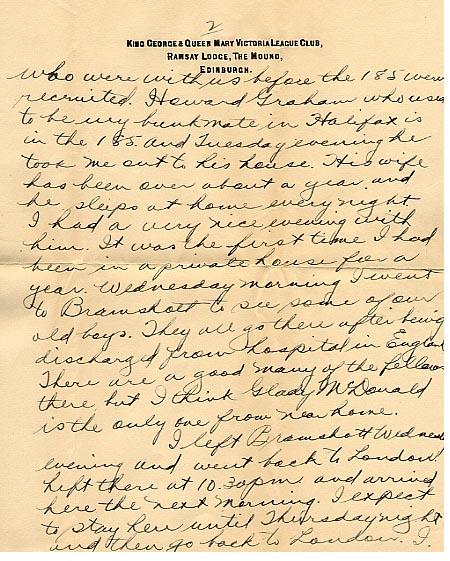 2
KING GEORGE & QUEEN MARY VICTORIA LEAGUE CLUB,
RAMSAY LODGE, THE MOUND,
EDINBURGH.
who were with us before the 185 were
recruited. Howard Graham who used
to be my bunk mate in Halifax is
in the 185 and Tuesday evening he
took me out to his house. His wife
has been over about a year and
he sleeps at home every night
I had a very nice evening with
him. It was the first time I had
been in a private house for a
year. Wednesday morning I went
to Bramshott to see some of our
old boys. They all go there after being
discharged from hospital in England
There are a good many of the fellows
there but I think Glady McDonald
is the only one from near home.
I left Bramshott Wednes
evening and went back to London.
Left there at 10.30 pm. and arrived
here the next morning. I expect
to stay here until Thursday night
and then go back to London. I